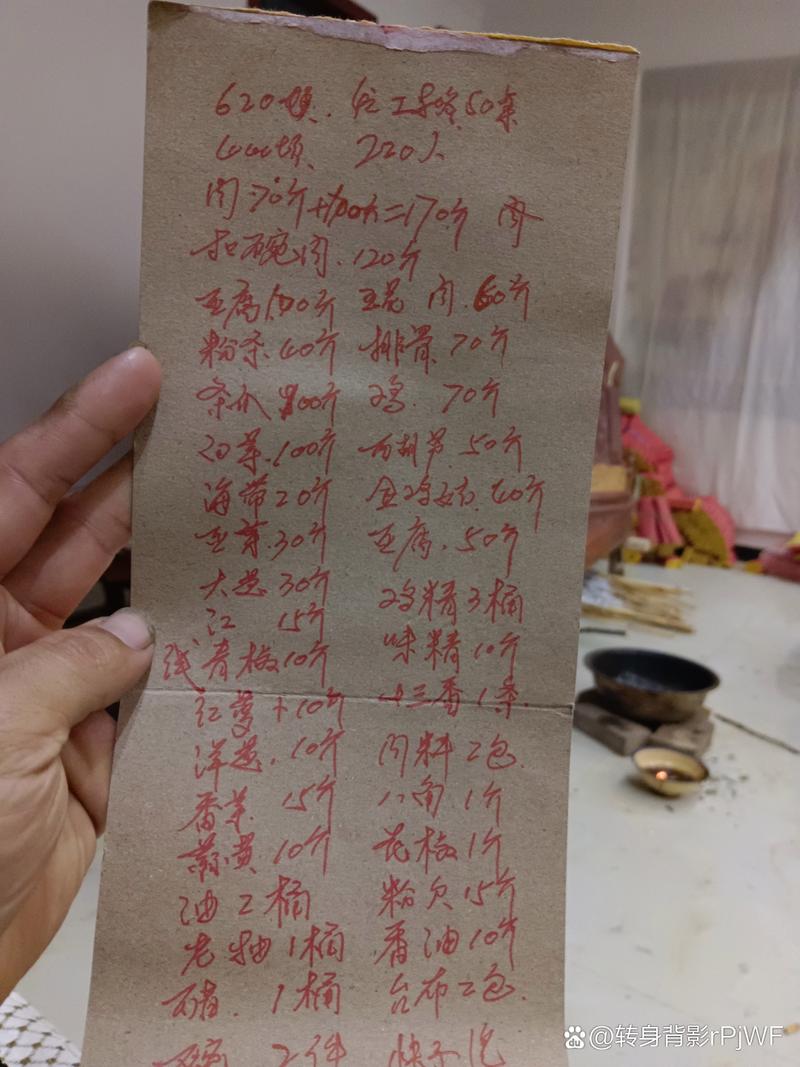 620块 50桌
220人
肉70斤+100斤=170斤 肉
扣碗肉 120斤
豆腐100斤 五花肉 60斤
粉条 40斤 排骨 70斤
冬瓜 100斤 鸡 70斤
白菜 100斤 西胡芦 50斤
海带20斤 40斤
豆芽 30斤 豆腐 50斤
大葱 30斤 鸡精3桶
江 15斤 味精 10斤
线青椒10斤 十三香1条
红萝卜10斤 肉料2包
洋葱 10斤 八角 1斤
香菜 15斤 花椒 1斤
蒜黄 10斤 粉欠 15斤
油2桶 香油10斤
老抽1桶 台布2包
醋 1桶
碗 2件 快子
@转身背影rPjWF